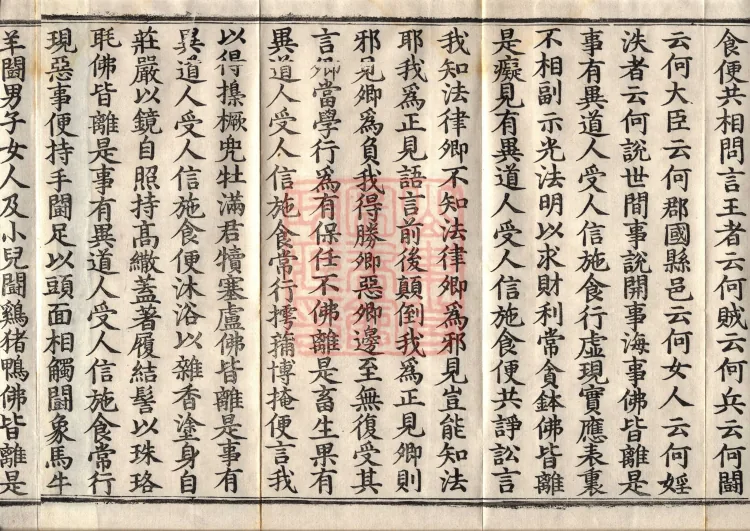 食便共相問言王者云何賊云何兵云何鬪
云何大臣云何郡國縣邑云何女人云何婬
泆者云何說世間事說開事海事佛皆離是
事有異道人受人信施食行虛現實應表裏
不相副示光法明以求財利常貪鉢佛皆離
是癡見有異道人受人信施食便共諍訟言
我知法律卿不知法律卿爲邪見豈能知法
耶我爲正見語言前後顛倒我爲正見卿則
邪見卿爲負我得勝卿惡卿邊至無復受其
言卿當學行爲有保任不佛離是畜生果有
異道人受人信施食常行摴蒱博掩便言我
以得橛兜牡滿君犢塞盧佛皆離是事有
異道人受人信施食便沐浴以雜香塗身自
莊嚴以鏡自照持髙繖蓋著履結髻以珠珞
毦佛皆離是事有異道人受人信施食常行
現惡事便持手鬪足以頭面相觸鬪象馬牛
羊鬪男子女人及小兒鬪鷄猪鴨佛皆離是